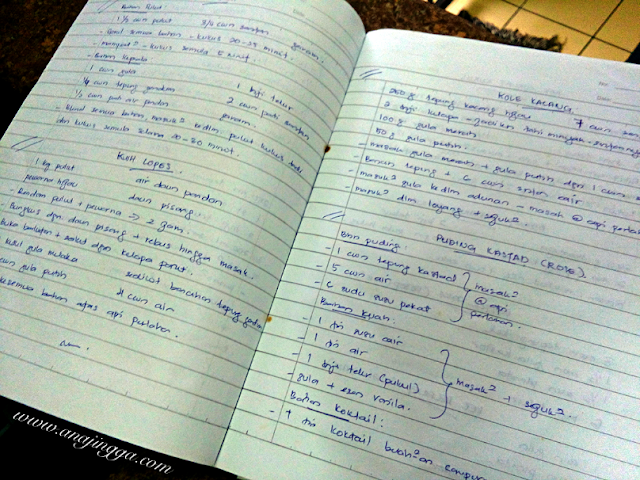 Bahan Pulut:
1 ½ cwn pulut 3/4 cwn santan
- Gaul semua bahan - kukus 20-25 minit. garam.
- mangkuk² - kukus semula 5 minit.
- Bahan kepala
1 cwn gula 1 biji telur
¼ cwn tepung gandum 2 cwn pati santan
½ cwn pati air pandan garam.
- kacau semua bahan, masuk² kedlm pulut kukus tadi
dan kukus semula selama 20-30 minit
KUIH LOPES.
1 kg pulut air daun pandan
pewarna hijau daun pisang
- Rendam pulut + pewarna → 2 jam.
- Bungkus dgn daun pisang + rebus hingga masak.
Buka balutan + salut dgn kelapa parut.
gula melaka sedikit bancuhan tepung
gula putih cwn air
semua bahan atas api perlahan.
KOLE KACANG
250 g tepung kacang hijau 7 cwn
2 biji kelapa - jadikan tahi minyak
100 g gula merah
50 g gula putih.
- masak gula merah + gula putih dgn 1 cwn
- Bancuh tepung + 6 cwn santan cair
- masuk² gula kedlm adunan - masak @ api
- masuk² dlm loyang + sejuk².
PUDING KASTAD (ROSE)
Bhn puding:
- 1 cwn tepung kastad masak²
- 5 cwn air @ api
- 6 sudu susu pekat perlahan.
Bahan kuah:
- 1 tin susu cair
- 1 tin air
- 1 biji telur (pukul) masak² + sejuk².
- gula + esen vanila.
Bahan koktail:
- 1 tin koktail buah²an
www.anajingga.com